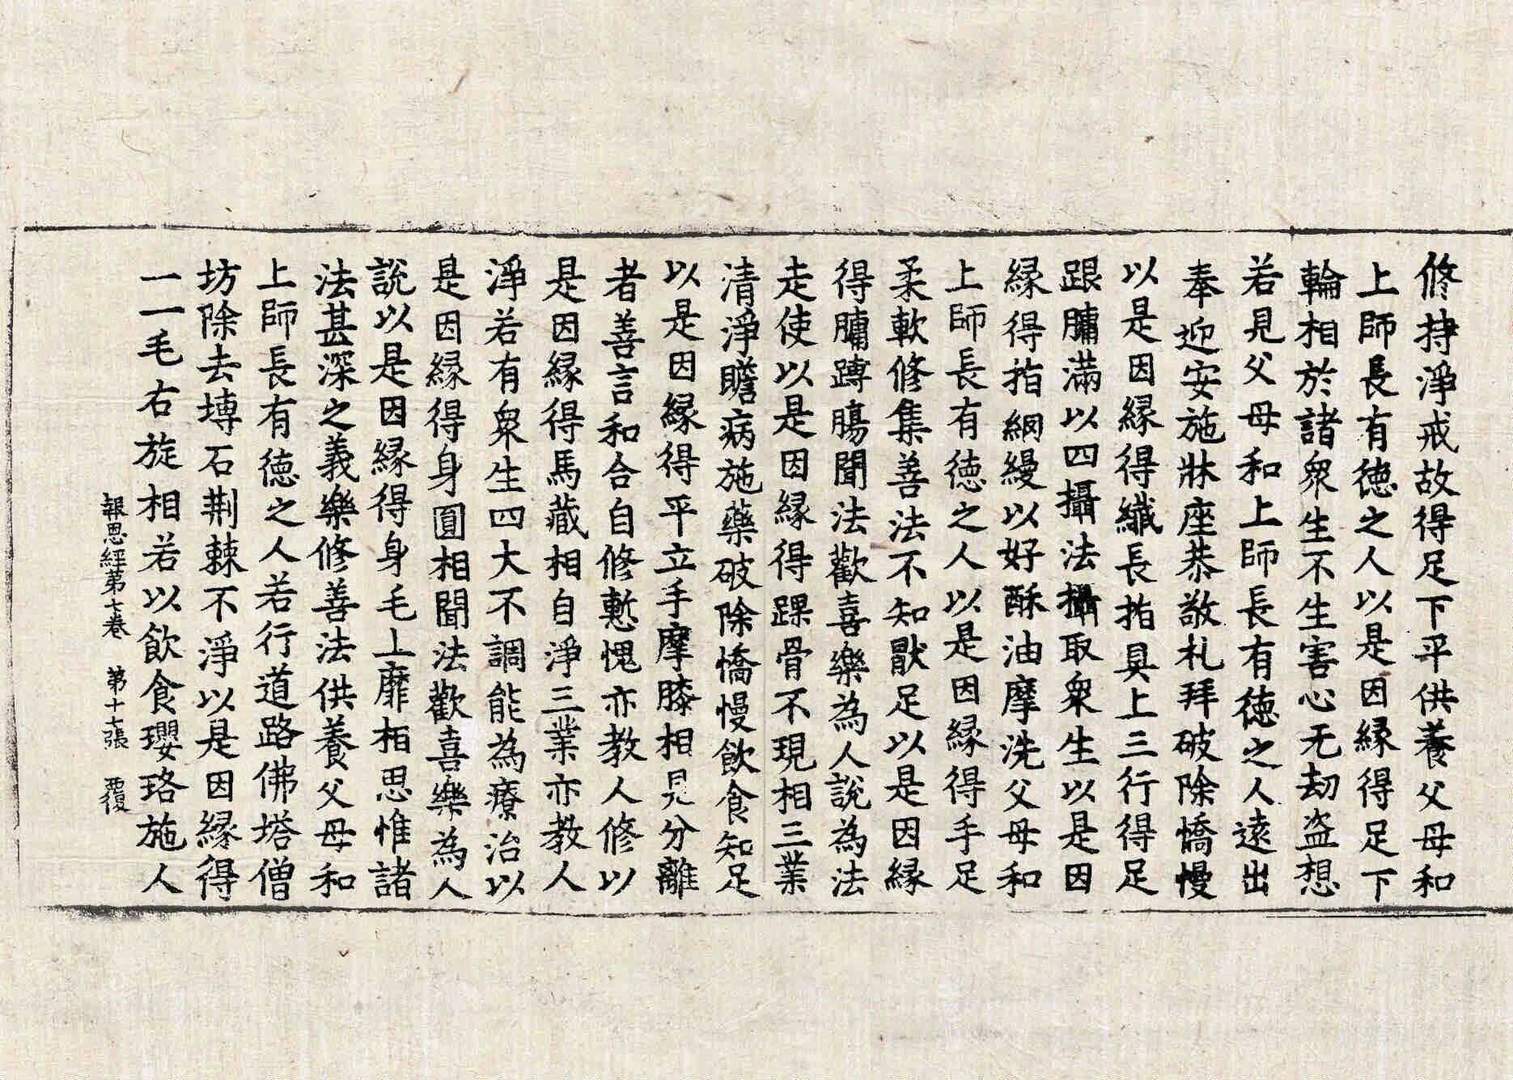 修持淨戒故得足下平供養父母和
上師長有德之人以是因緣得足下
輪相於諸衆生不生害心无劫盗想
若見父母和上師長有德之人遠出
奉迎安施牀座恭敬礼拜破除憍慢
以是因緣得纖長指具上三行得足
跟𦟛滿以四攝法攝取衆生以是因
緣得指網縵以好酥油摩洗父母和
上師長有德之人以是因緣得手足
柔軟修集善法不知猒足以是因緣
得𦟛踹腸聞法歡喜樂為人說為法
走使以是因緣得踝骨不現相三業
清淨瞻病施藥破除憍慢飲食知足
以是因緣得平立手摩膝相見分離
者善言和合自修慙愧亦教人修以
是因緣得馬藏相自淨三業亦教人
淨若有衆生四大不調能為療治以
是因緣得身圓相聞法歡喜樂為人
說以是因緣得身毛上靡相思惟諸
法甚深之義樂修善法供養父母和
上師長有德之人若行道路佛塔僧
坊除去塼石荆棘不淨以是因緣得
一一毛右旋相若以飲食瓔珞施人
報恩經第七卷 第十七張 覆